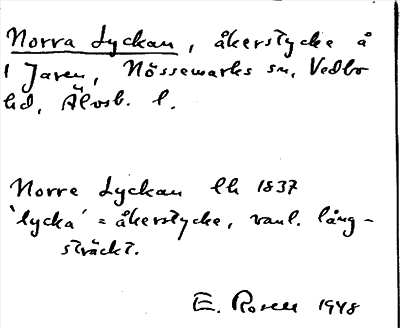 Norra Lyckan, åkerstycke å
1 Jaren, Nössemarks sn, Vedbo
hd, Älvsb. l.
Norre Lyckan lh 1837
'lycka' = åkerstycke, vanl. lång-
sträckt.
E. Rosell 1948